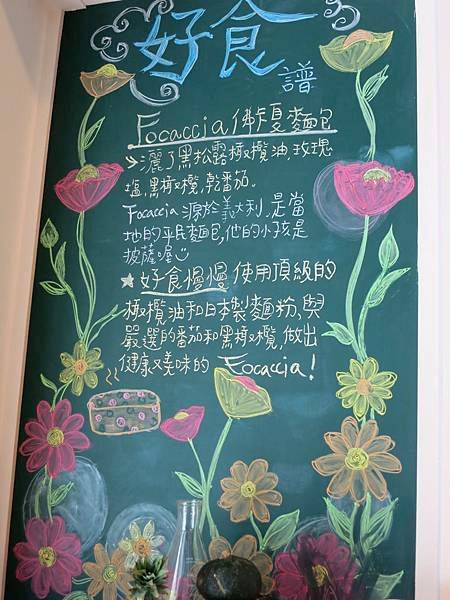 好食
譜
Focaccia佛卡夏麵包
灑了黑松露橄欖油,玫瑰
塩,黑橄欖,乾番茄。
Focaccia源於義大利.是當
地的平民麵包,他的小孩是
披薩喔
★好食慢慢使用頂級的
橄欖油和日本製麵粉,與
嚴選的番茄和黑橄欖,做出
健康又美味的 Focaccia!